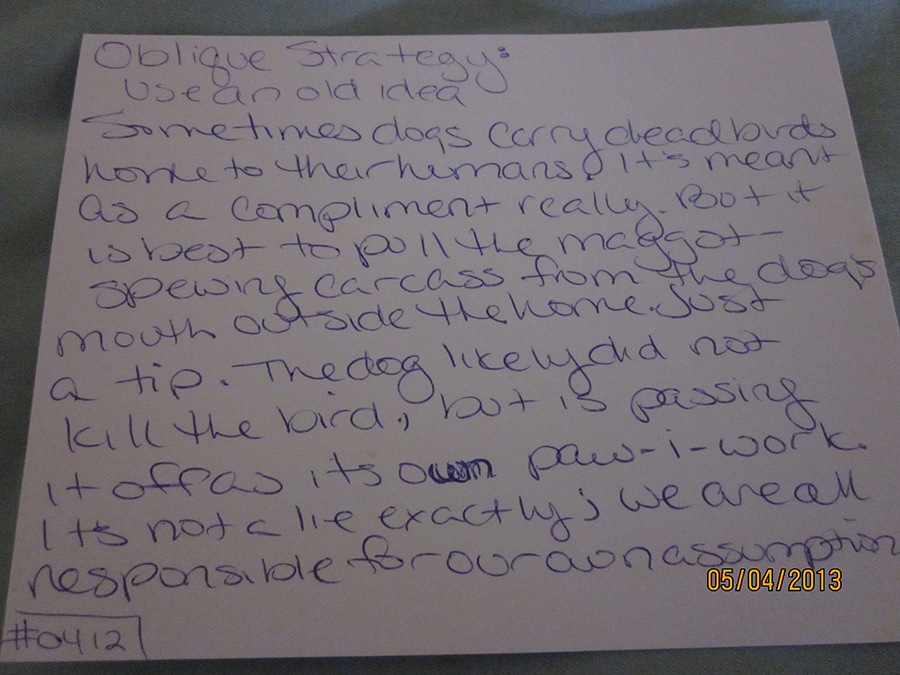 Oblique Strategy:
Use an old idea
Sometimes dogs carry dead birds
home to their humans. It's meant
as a compliment really. But it
is best to pull the maggot-
spewing carcass from the dogs
mouth outside the home. Just
a tip. The dog likely did not
kill the bird, but is passing
it off as its own paw-i-work.
It's not a lie exactly; we are all
responsible for our own assumption
05/04/2013
#0412